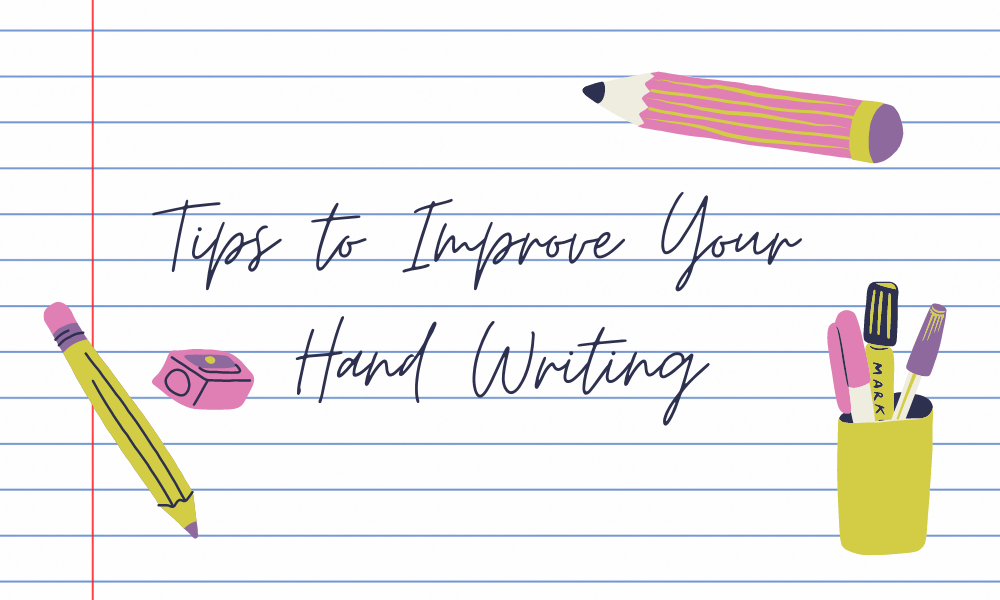 Tips to Improve Your
Hand Writing
MARK